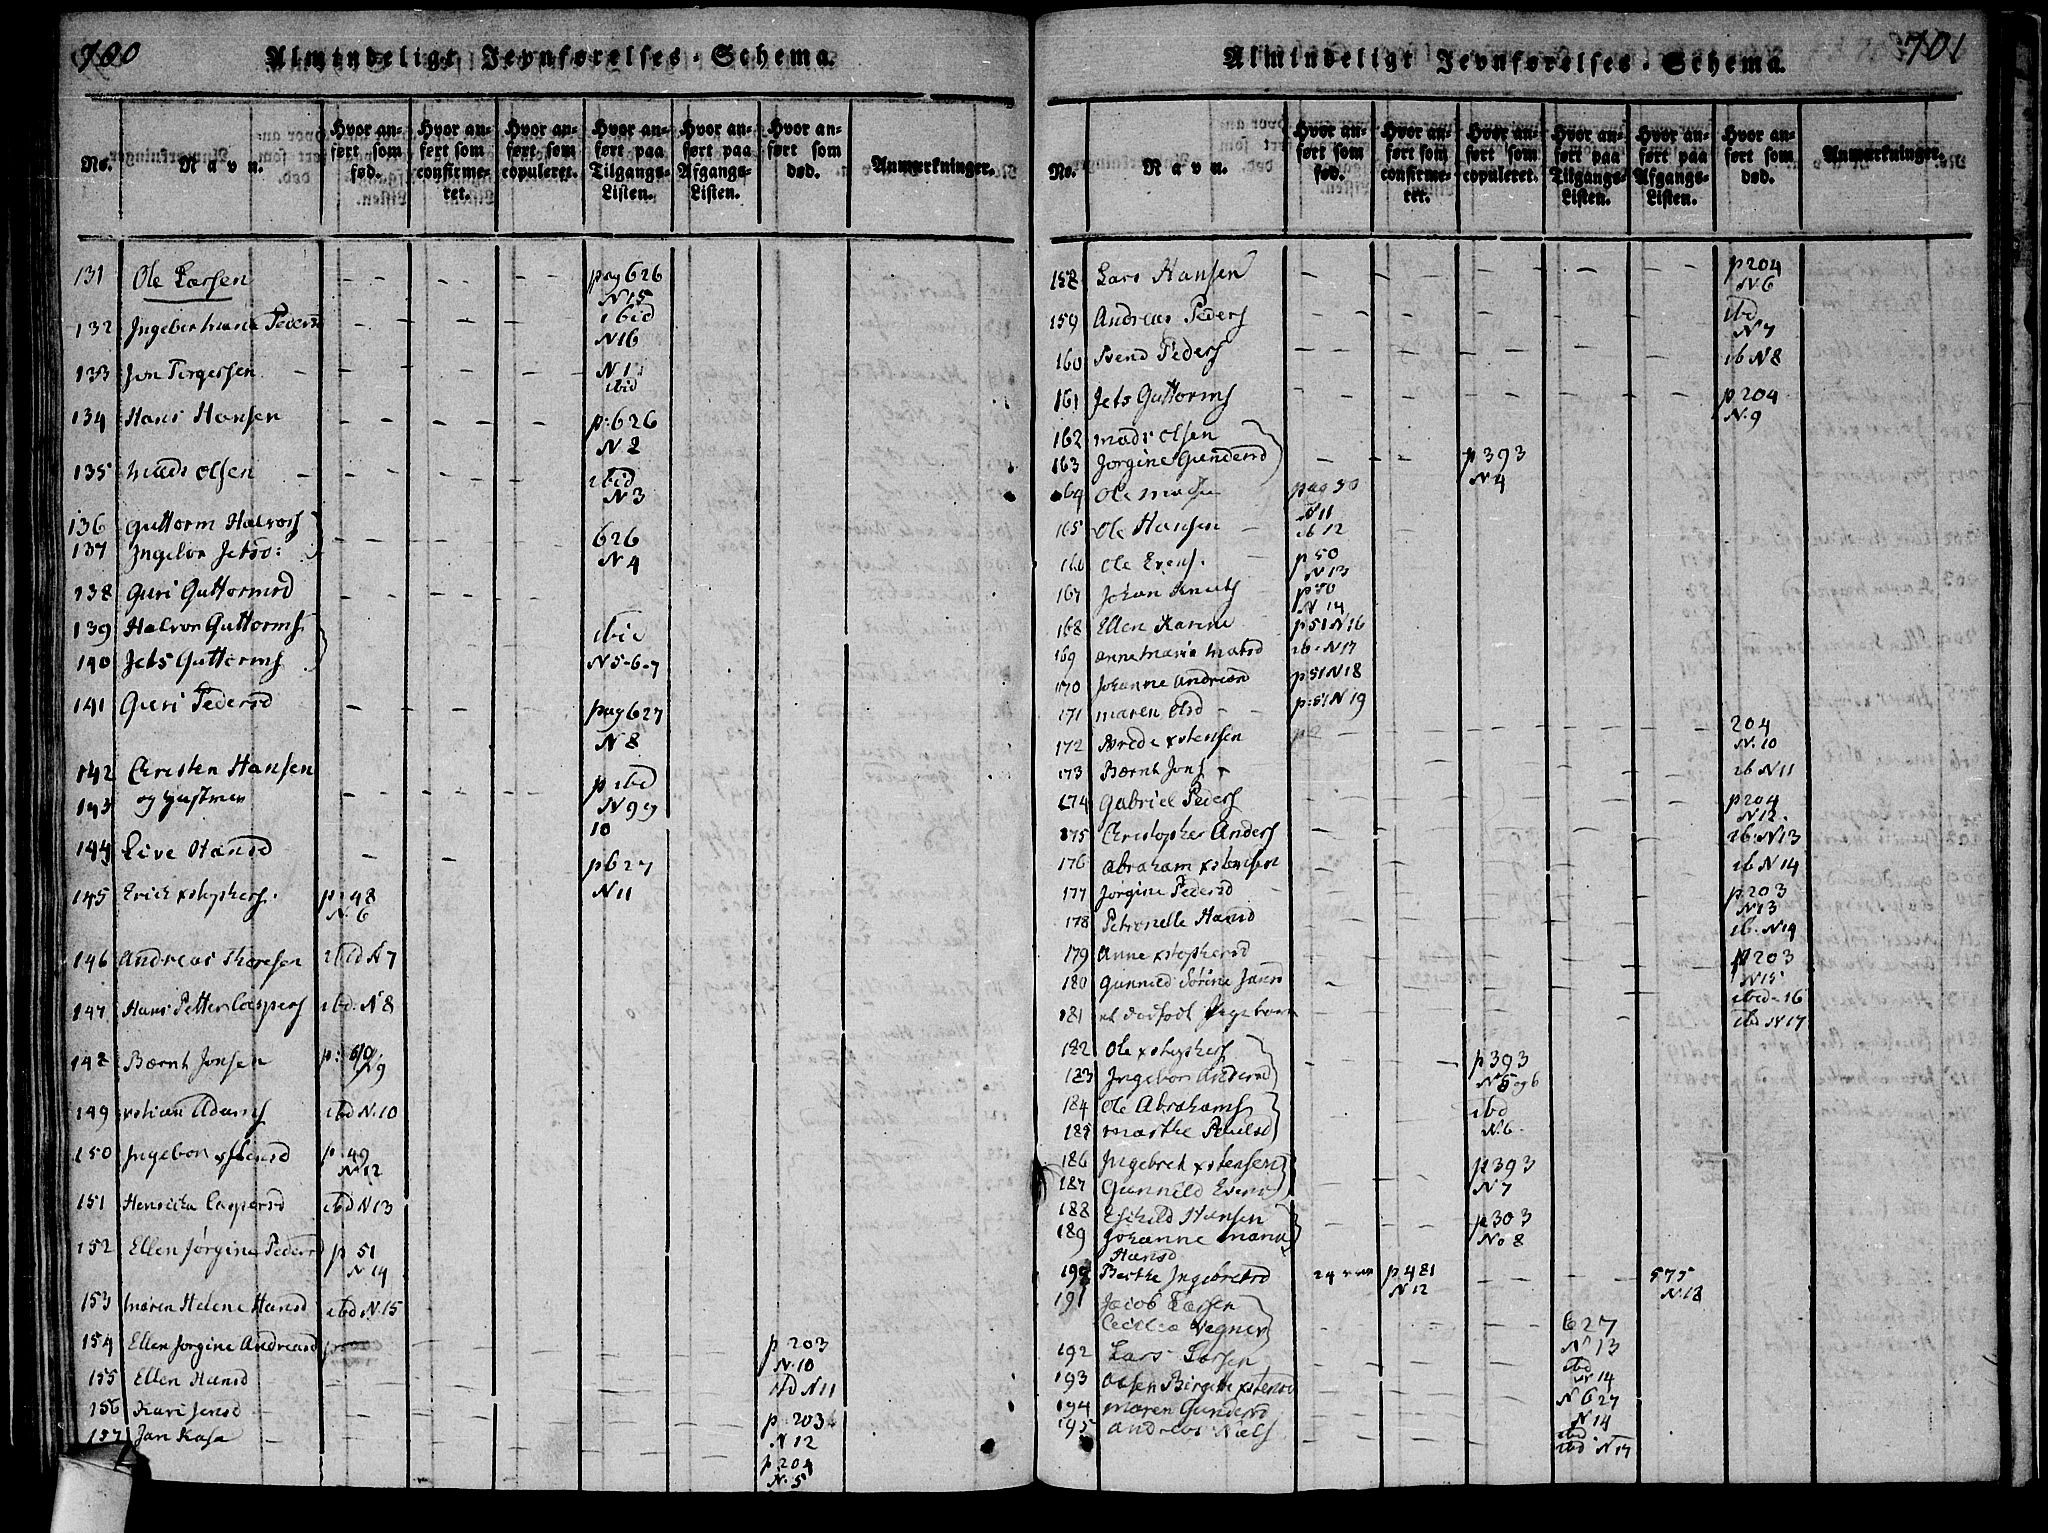 700
Almindeligt Jevnførelses-Schema.
No.
Navn.
Hvor anført som fød.
Hvor anført som confirmeret.
Hvor anført som copuleret.
Hvor anført paa Tilgangs-Listen.
Hvor anført paa Afgangs-Listen.
Hvor anført som død.
Anmærkninger.
131 Ole Larsen pag 626 N 15
132 Pedersd ibid N16
133 Jon Torgersen N 1 ibid
134 Hans Hansen p: 626 N 2
135 Mads Olsen ibid N 3
136 Guttorm Halvors
137 Ingebor Jetsd: 626 N 4
138 Guri Guttormsd
139 Halvor Guttorms ibid
140 Jets Guttorms N 5-6-7
141 Guri Pedersd pag 627 N 8
142 Christen Hansen p ibid
143 og Hustrue N 9 og 10
144 Live Hansd p 627 N 11
145 Erich xstophers. p: 48 N. 6
146 Andreas Thoresen ibid N 7
147 Hans Petter Caspers ibd. N 8
148 Bærnt Jonsen N 9
149 xstian Adams ibd N. 10
150 Ingebor xstensd p. 49 N 12
151 Henricha Caspersd ibd N 13
152 Ellen Jørgine Pedersd p 51 N 14
153 Maren Helene Hansd ibd N. 15
154 Ellen Jorgine Andreasd p 203 N. 10
155 Ellen Hansd ibd N 11
156 Kari Jensd p. 203 N 12
157 Jan Kasa p. 204 N. 5
701
Almindeligt Jevnførelses-Schema.
No.
Navn.
Hvor anført som fød.
Hvor anført som confirmeret.
Hvor anført som copuleret.
Hvor anført paa Tilgangs-Listen.
Hvor anført paa Afgangs-Listen.
Hvor anført som død.
Anmærkninger.
158 Lars Hansen p 204 N. 6
159 Andreas Peders ibd N 7
160 Svend Peders ib N 8
161 Jets Guttorms p. 204 N. 9
162 Mads Olsen
163 Jorgine Gundersd p 393 N 4
164 Ole pag 50 N 11
165 Ole Hansen ib 12
166 Ole Evens. p 50 N 13
167 Johan Knuts p 50 N 14
168 Ellen Karine p 51 N 16
169 Anne Marie Matsd ib. N 17
170 Johanne Andreasd p. 51 N 18
171 Maren Olsd p: 51 N 19
172 xstensen 204 N. 10
173 Bærnt Jons ib N 11
174 Gabriel Peders p 204 N 12.
175 Christopher Anders ib. N 13
176 Abraham xstensen ib N 14
177 Jørgine Pedersd p 203 N 13
178 Petronelle Hansd ib. N 14
179 Anne xstophersd p 203 N 15
180 Gunnild Sørine Jansd ibd - 16
181 et dødfødt Pigebarn ibd N 17
182 Ole xstophers
183 Ingebor Andersd p 393 N 5 og 6
184 Ole Abrahams ibd
185 Marthe Poulsd N. 6
186 Ingebret xstensen p 393
187 Gunnild Evens N 7
188 Eschild Hansen p 303
189 Johanne Maria Hansd No 8
190 Berthe Ingebretsd p 481 N 12 575 N. 18
191 Jacob Larsen
Cecilia Wegner 627 N 13
192 Lars Larsen ibd N 14
193 Birgitte xstensd N 627
194 Maren Gundersd N 14 ibd
195 Andreas Niels ibd N 17